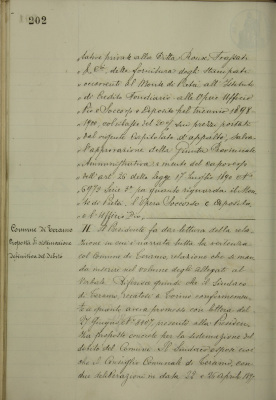 202
tativa privata alla Ditta
& Cⁱ della fornitura degli Stampati
occorrenti al Monte di Pietà all'Istituto
di Credito Fondiario alle Opere Ufficio
Pio e Soccorso e Deposito pel triennio 1898-
1900, col ribasso del 20% sui prezzi portati
dal capitolato d'appalto, salva
l'approvazione della Giunta Provinciale
Amministrativa a mente del disposto
dell'art. 36 della legge 17 Luglio 1890 N°
6972 Serie 3ª per quanto riguarda il Mon
te di Pietà, l'Opera Soccorso e Deposito
e l'Ufficio Pio.
Comune di
Proposta di
definitiva del debito
Il Presidente fa dar lettura della rela
zione in cui è narrata tutta la vertenza
col Comune di relazione che si man
da inserire nel volume degli allegati al
Verbale. Riferisce quindi che il Sindaco
di recatosi a Torino conformemen
te a quanto aveva promesso con lettera del
27 Giugno 1897, presentò alla Presiden
za proposte concrete per la sistemazione del
debito del Comune. Il Sindaco espose
che il Consiglio Comunale di con
due deliberazioni in data 22 e 26 Aprile 189